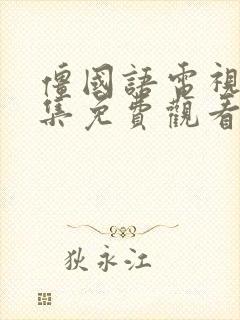 僵國語電視
集免費觀看
狄永江